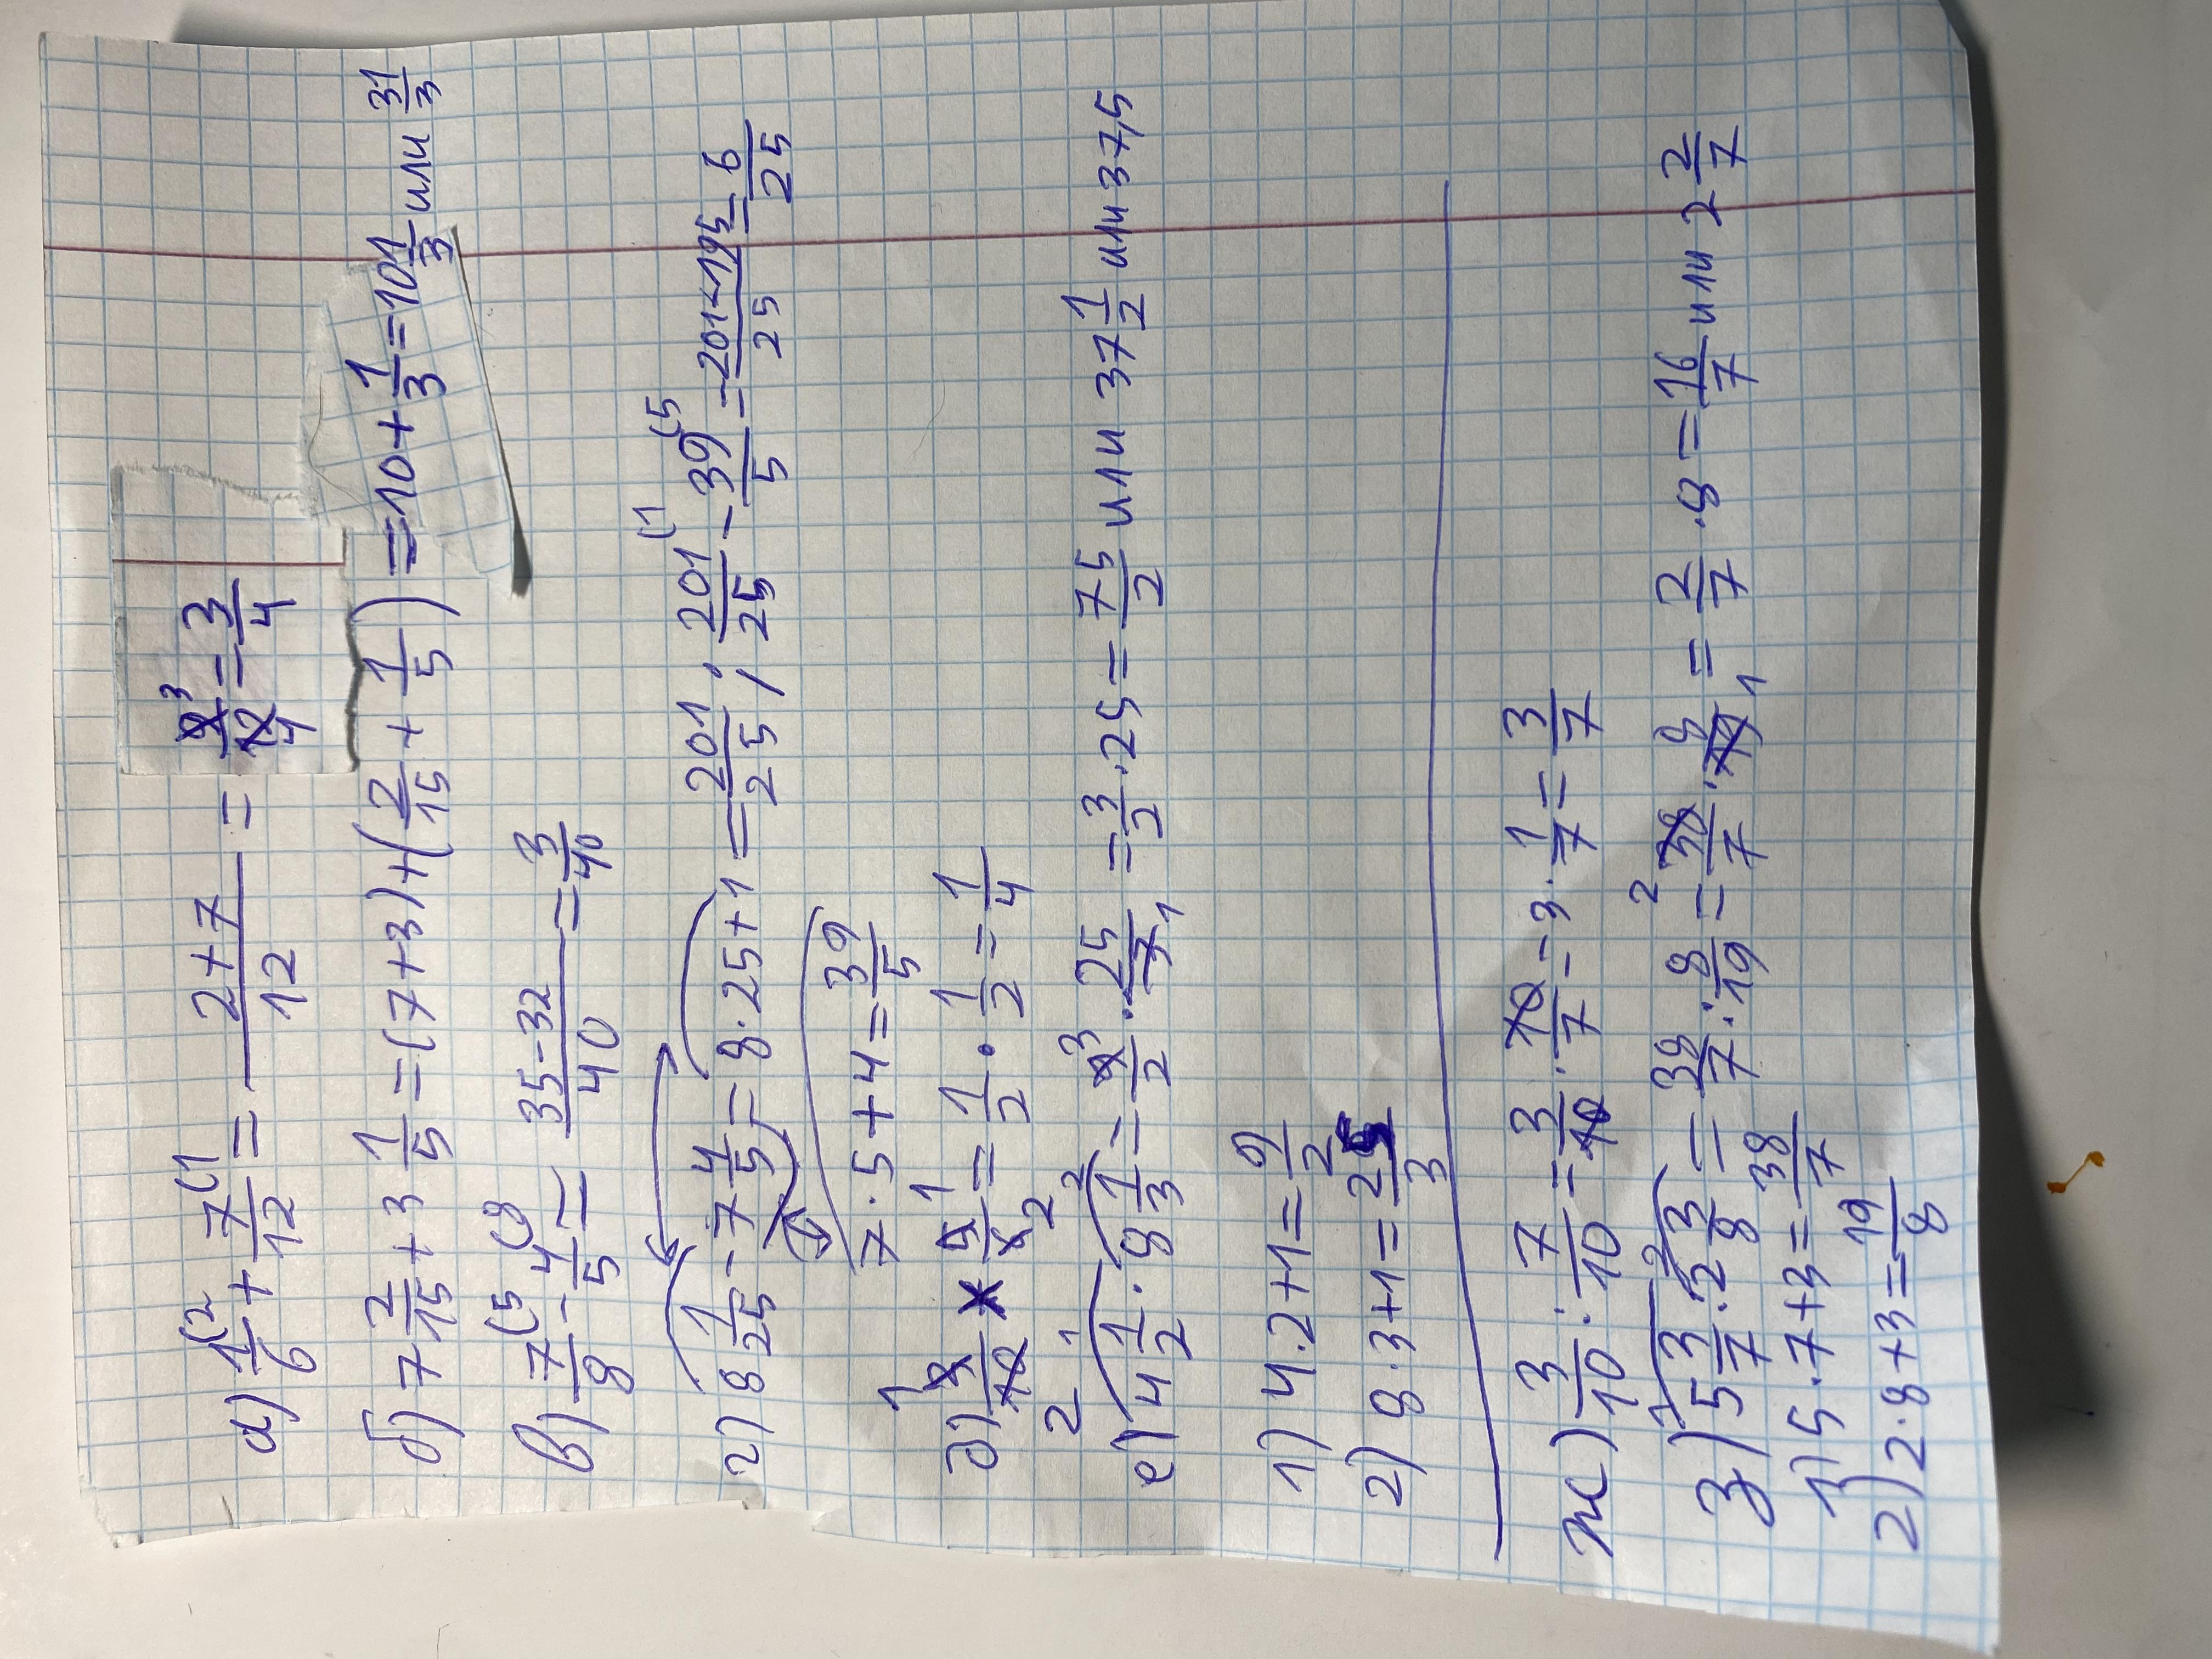 а) 1/6 (2 + 7/12 (1 = 2+7/12 = 9 3/12 4 = 3/4
б) 7 2/15 + 3 1/5 = (7+3)+(2/15 + 1/5) = 10 + 1/3 = 10 1/3 или 31/3
в) 7/8 (5 - 4/5 (8 = 35-32/40 = 3/40
г) 8 1/25 - 7 4/5 = 8·25+1 = 201/25 ; 201/25 (1 - 39/5 (5 = 201-195/25 = 6/25
7·5+4 = 39/5
д) 1 2 · 1 2 = 1/2 · 1/2 = 1/4
е) 4 1/2 · 8 1/3 = 9 3/2 · 25/3 1 = 3/2 · 25 = 75/2 или 37 1/2 или 37,5
1) 4·2+1 = 9/2
2) 8·3+1 = 25/3
ж) 3/10 : 7/10 = 3/10 · 10/7 = 3 · 1/7 = 3/7
з) 5 3/7 : 2 3/8 = 38/7 · 8/19 = 2 38/7 · 8/19 1 = 2/7 · 8 = 16/7 или 2 2/7
1) 5·7+3 = 38/7
2) 2·8+3 = 19/8